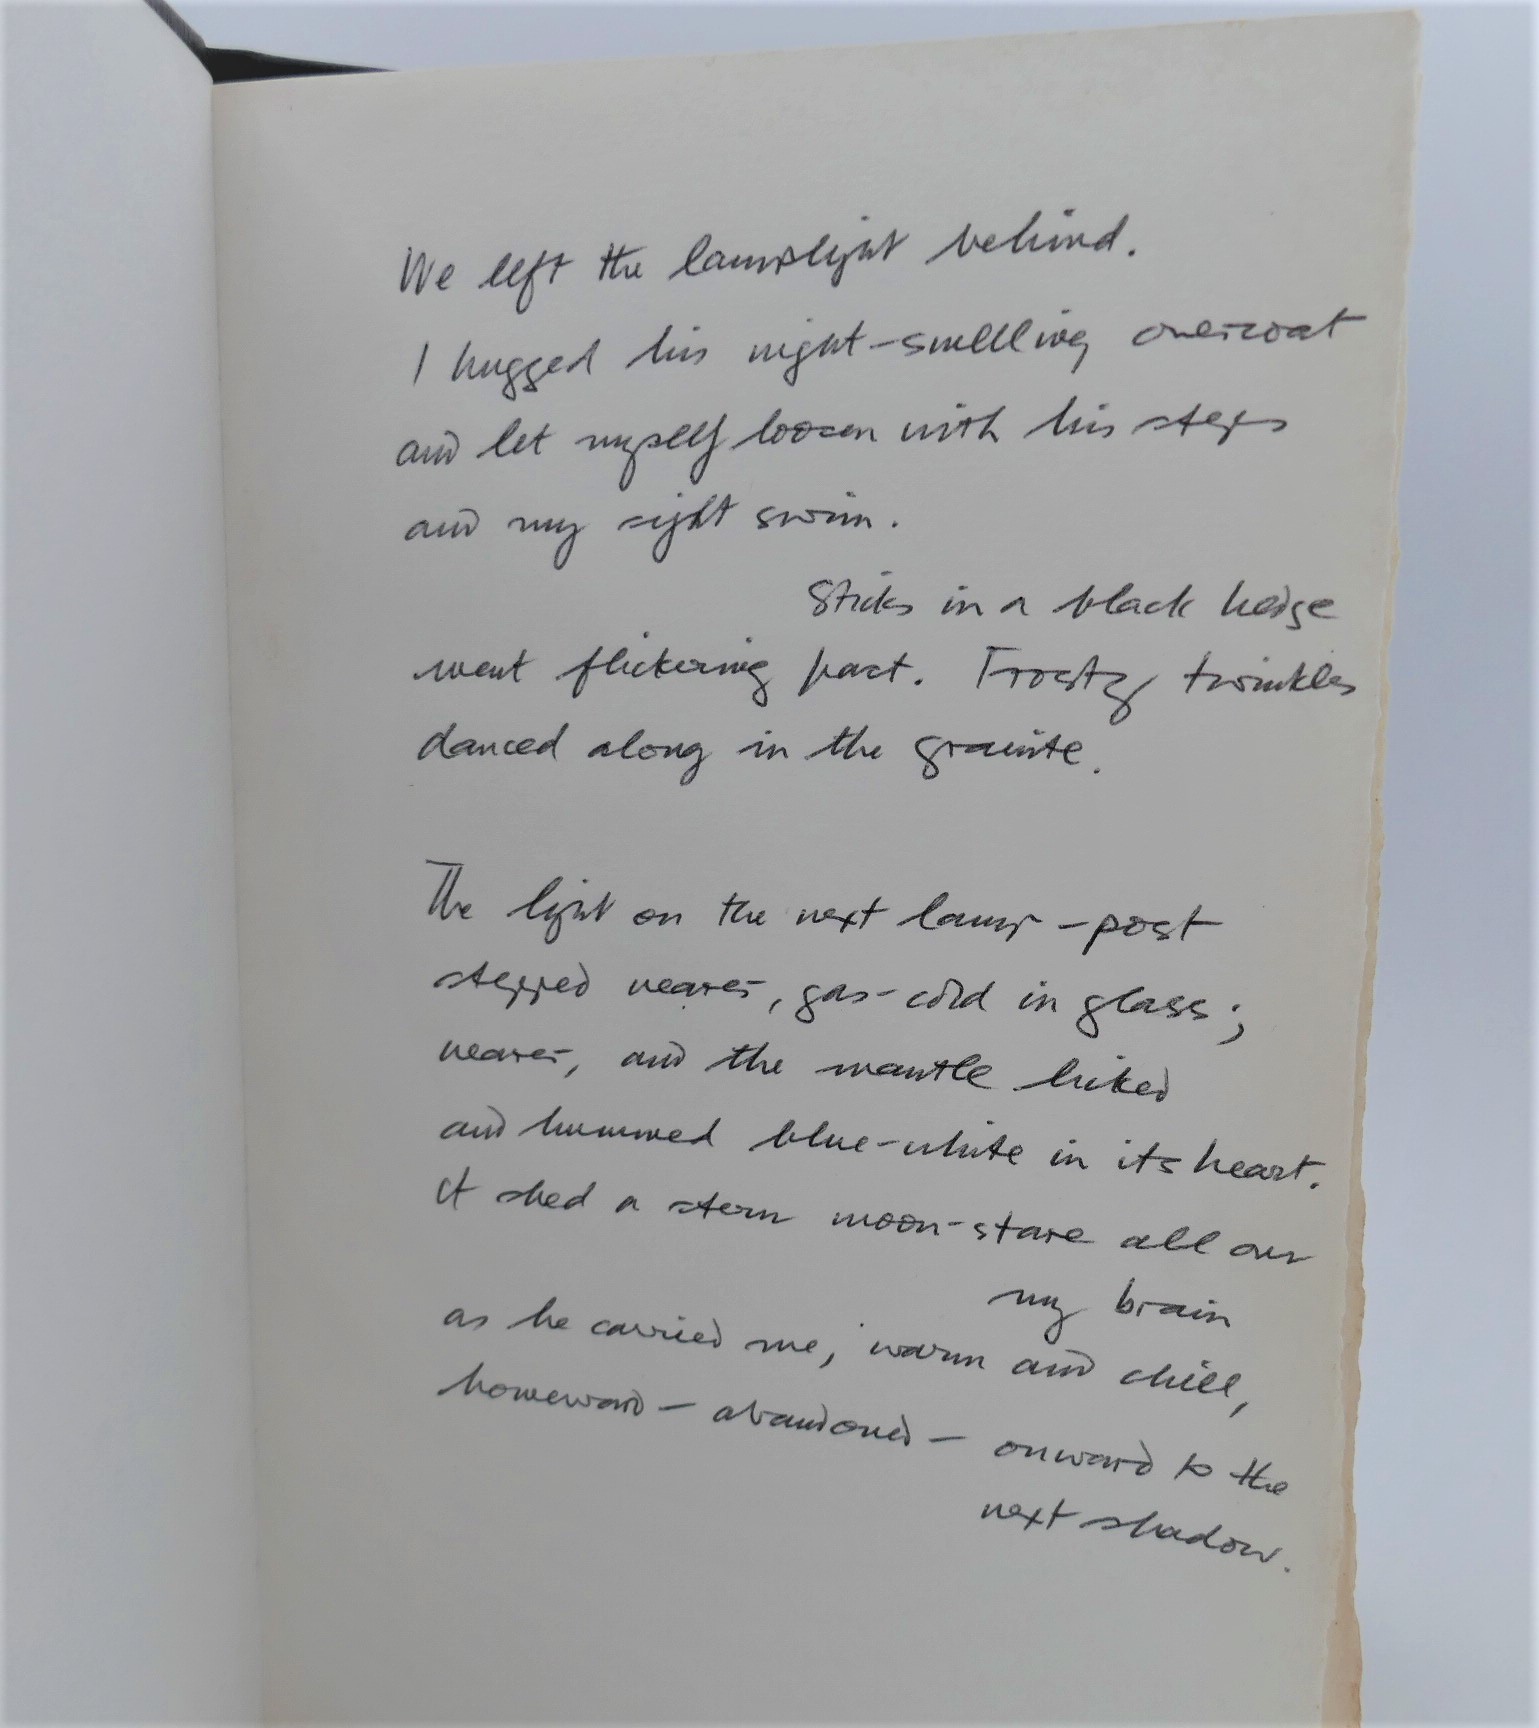 We left the lamplight behind.
I hugged his night-smelling overcoat
and let myself loosen with his steps
and my sight swim.
Sticks in a black hedge
went flickering past. Frosty twinkles
danced along in the granite.
The light on the next lamp-post
stepped nearer, gas-cold in glass;
nearer, and the mantle licked
and hummed blue-white in its heart.
It shed a stern moon-stare all over
my brain
as he carried me, warm and chill,
homeward - abandoned - onward to the
next shadow.